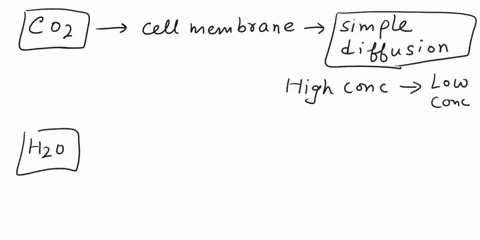 CO2 → cell membrane → simple diffusion
High conc → Low conc
H2O